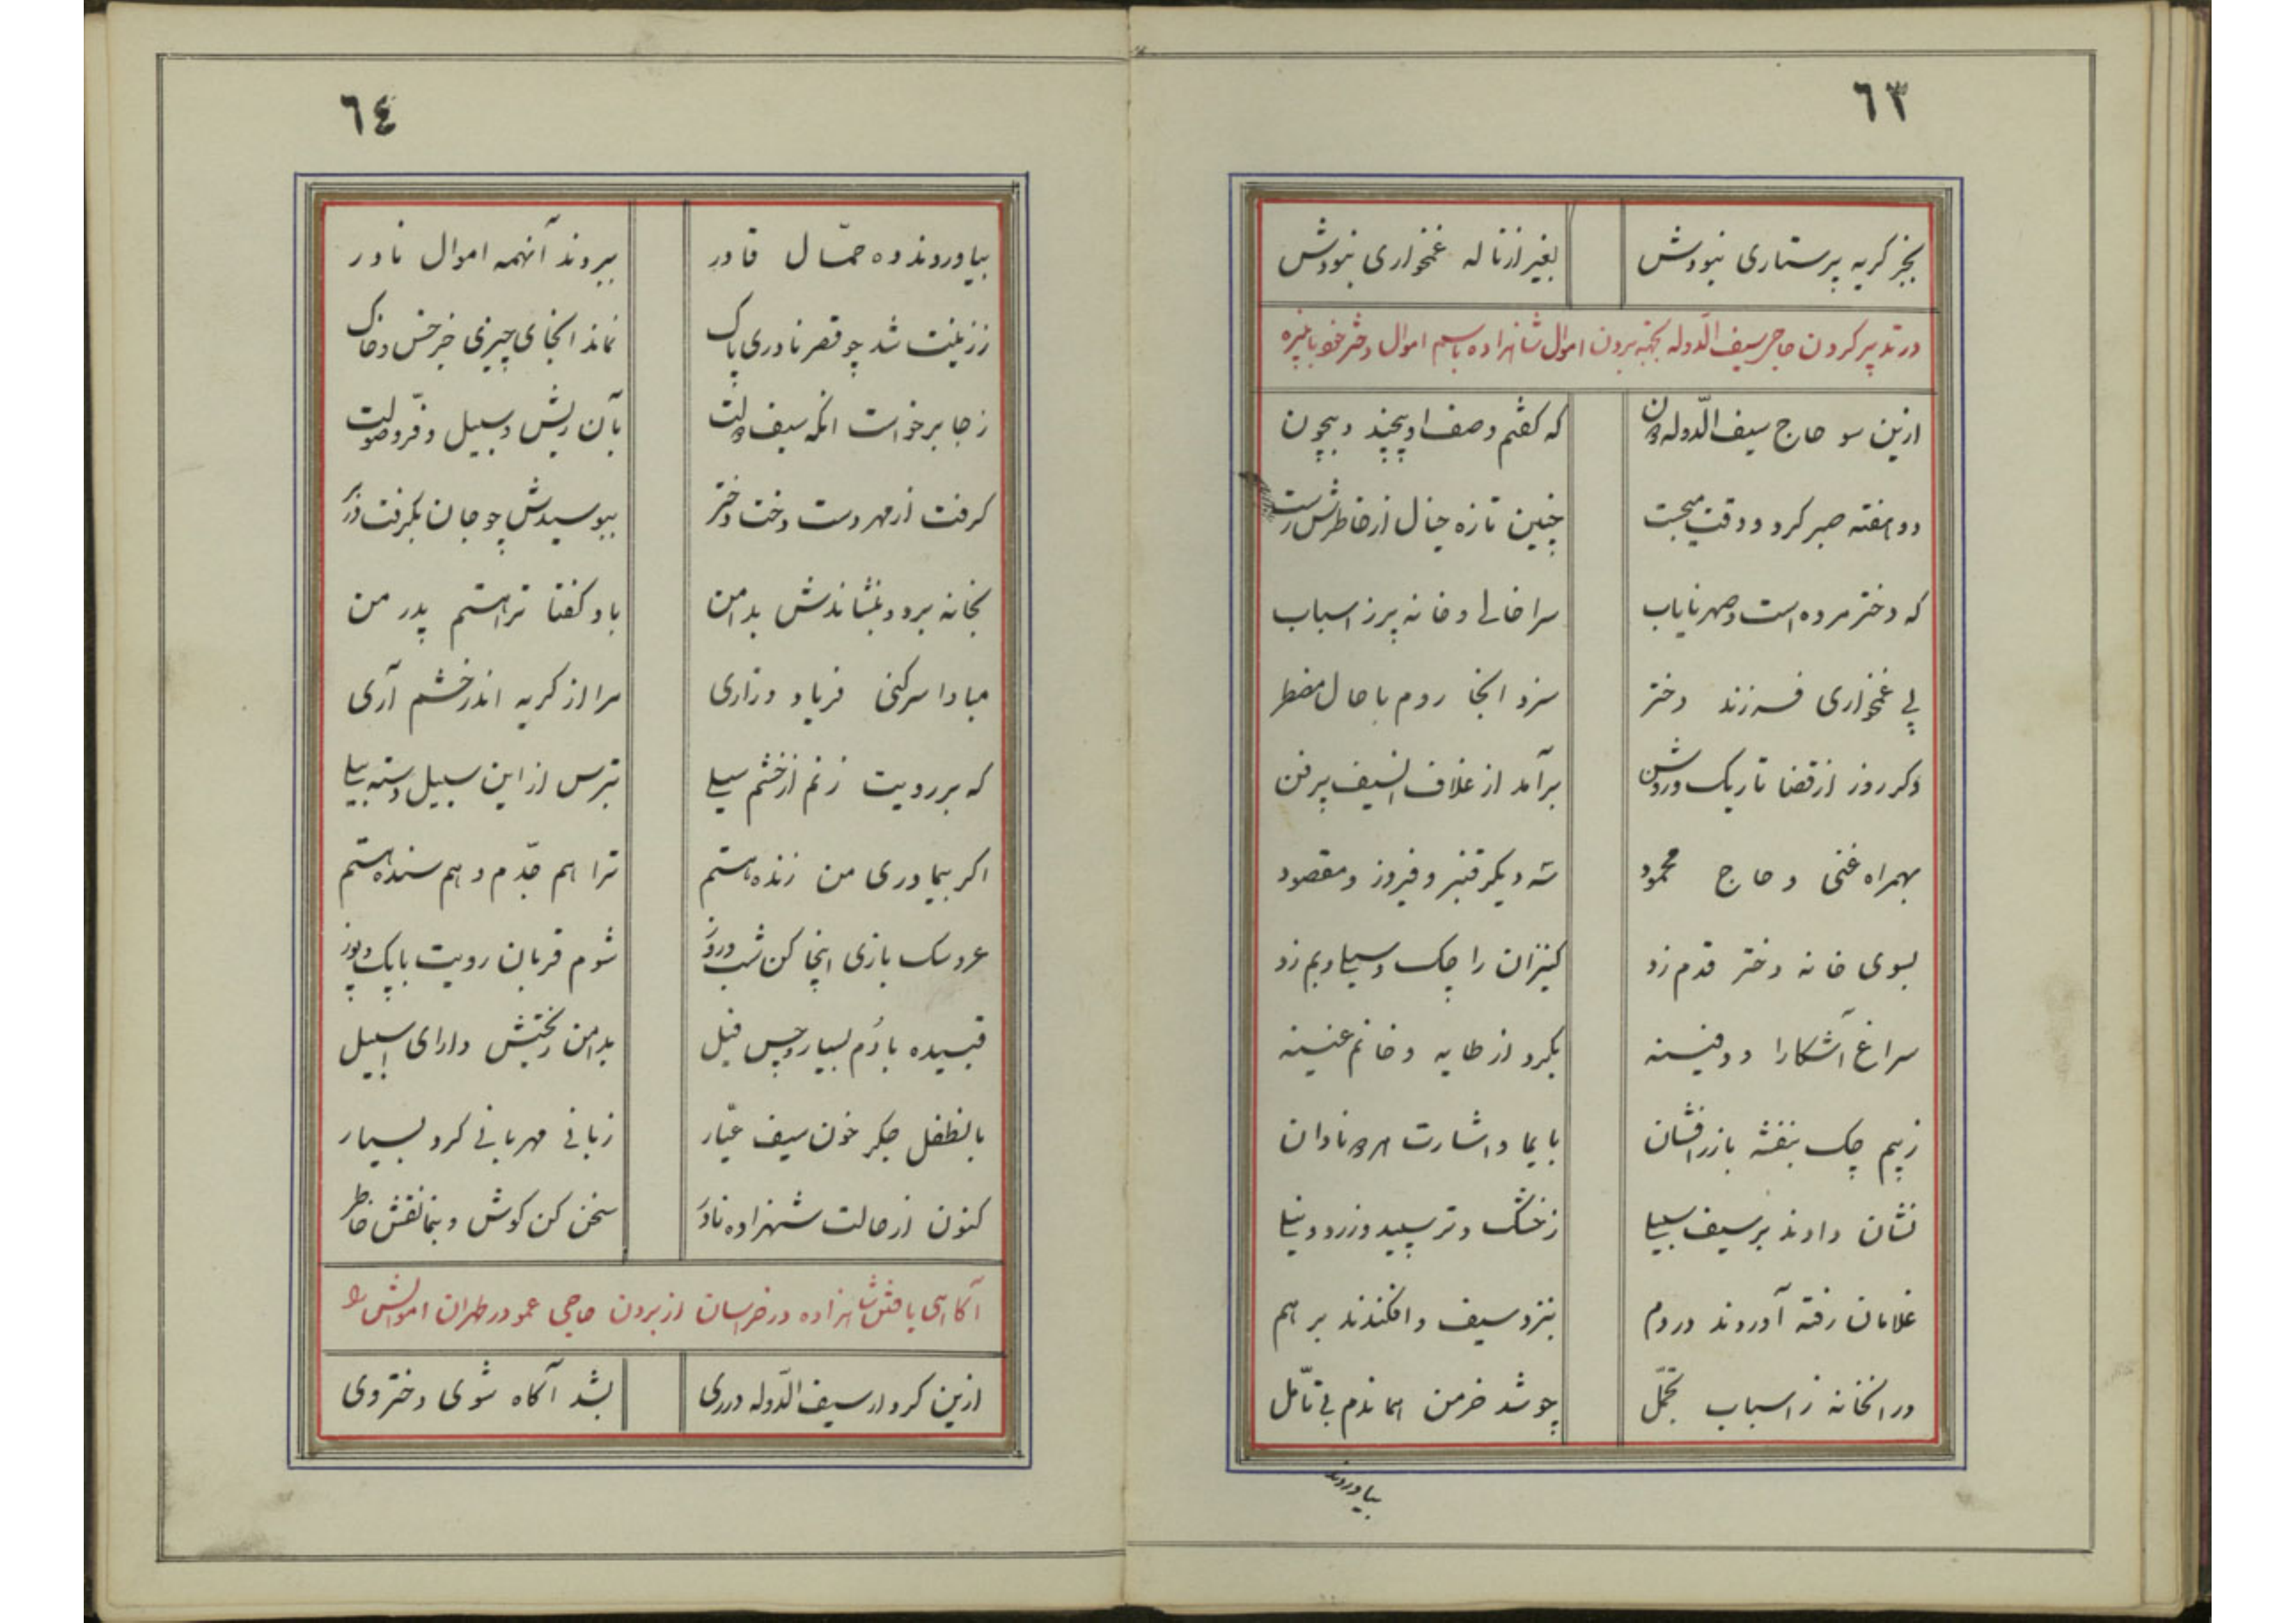 ٦٣
بجز کریه پرستاری نبودش بغیر از ناله غمخواری نبودش
در تدبیر کردن حاجی سیف الدّوله بجهة بردن اموال شاهزاده باسم اموال دختر خود بانیزه
ازین سو حاج سیف الدّوله دون که کفتم وصف او بیچند و بیچون
دو هفته صبر کرد و وقت میجست چنین تازه خیال از خاطرش رست
که دختر مرده است و صهر نایاب سرا خالی و خانه پر ز اسباب
پی غمخواری فرزند دختر سزد انجا روم با حال مضطر
دکر روز از قضا تاریک و روشن برآمد از غلاف السیف پر فن
بهمراه غنی و حاج محمود سه دیکر قنبر و فیروز و مقصود
بسوی خانه دختر قدم زد کنیزان را چک و سیلی و بم زد
سراغ آشکارا و دفینه بکرد از طایه و خانم غنینه
ز بیم چک بنفشه با زرافشان بایما و اشارت نادان
نشان دادند بر سیف سبیلی ز خشک و تر سپید و زرد و نیلی
غلامان رفته آوردند در دم بنزد سیف و افکندند بر هم
در انخانه ز اسباب تجمّل چو شد خرمن هماندم بی تأمّل
بیاوردند
٦٤
بیاوردند ده حمّال قادر ببردند آنهمه اموال نادر
ز زینت شد چو قصر نادری پاک نماند انجای چیزی جز خس و خاک
ز جا برخواست انکه سیف دولت بآن ریش و سبیل و فرّ و صولت
کرفت از مهر دست دخت دختر ببوسیدش چو جان بکرفت در بر
بخانه برد و بنشاندش بدامن باو کفتا ترا هستم پدر من
مبادا سر کنی فریاد و زاری مرا از کریه اندر خشم آری
که بر رویت زنم از خشم سیلی بترس از این سبیل دسته بیلی
اکر بیمادری من زنده هستم ترا هم جدّم و هم بنده هستم
عروسک بازی اینجا کن شب و روز شوم قربان رویت با پک و پوز
قبیده بادُم بسیار و چس فیل بدامن ریختش دارای اسبیل
بانطفل جکر خون سیف عیّار زبانی مهربانی کرد بسیار
کنون از حالت شهزاده نادر سخن کن کوش و بنما نقش خاطر
آکاهی یافتن شاهزاده در خراسان از بردن حاجی عمو در طهران اموالش را
ازین کردار سیف الدّوله در ری بشد آکاه شوی دختر وی